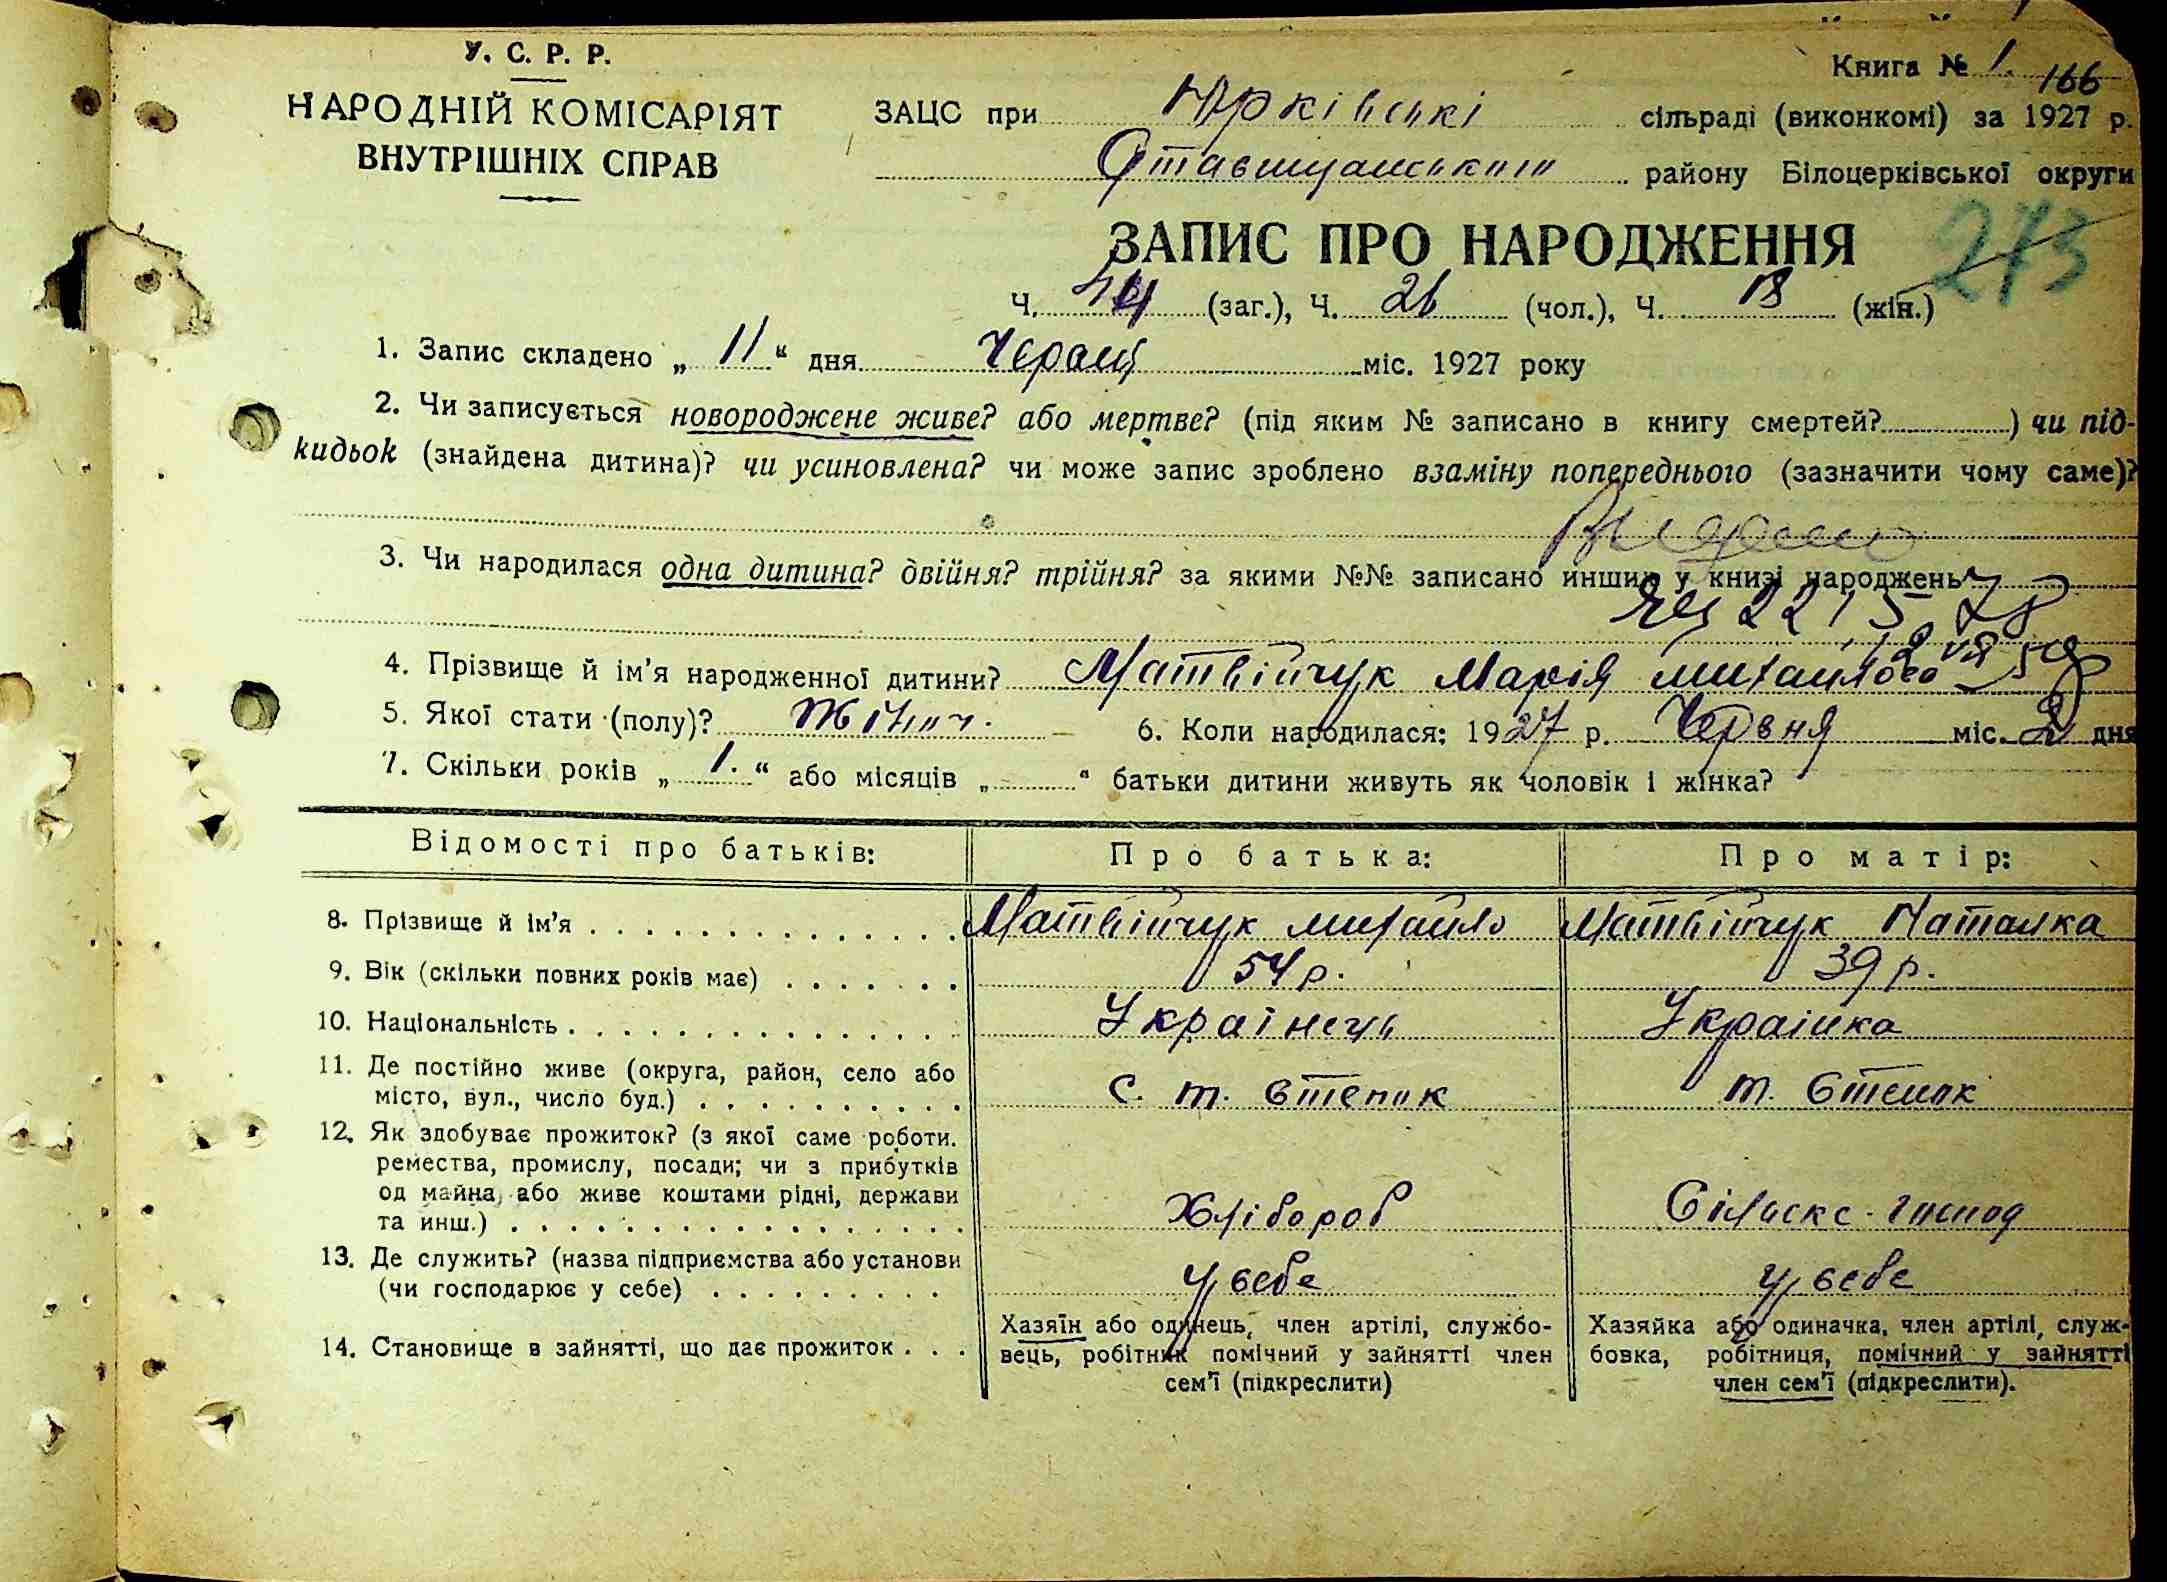 У. С. Р. Р.
НАРОДНІЙ КОМІСАРІЯТ
ВНУТРІШНІХ СПРАВ
Книга № 1. 166
ЗАЦС при Юрківські сільраді (виконкомі) за 1927 р.
Ставищанського району Білоцерківської округи
ЗАПИС ПРО НАРОДЖЕННЯ
273
Ч. 44 (заг.), Ч. 26 (чол.), Ч. 18 (жін.)
1. Запис складено „ 11 “ дня Червця міс. 1927 року
2. Чи записується новороджене живе? або мертве? (під яким № записано в книгу смертей? ) чи під-
кидьок (знайдена дитина)? чи усиновлена? чи може запис зроблено взаміну попереднього (зазначити чому саме)?
3. Чи народилася одна дитина? двійня? трійня? за якими №№ записано инших у книзі народжень
4. Прізвище й ім'я народженної дитини? Матвійчук Марія Михайлова
5. Якої стати (полу)? Жіноч. 6. Коли народилася: 1927 р. Червня міс. 2 дня
7. Скільки років „ 1. “ або місяців „ “ батьки дитини живуть як чоловік і жінка?
Відомості про батьків: Про батька: Про матір:
8. Прізвище й ім'я Матвійчук Михайло Матвійчук Наталка
9. Вік (скільки повних років має) 54 р. 39 р.
10. Національність Українець Українка
11. Де постійно живе (округа, район, село або
місто, вул., число буд.) с. т. Степок т. Степок
12. Як здобуває прожиток? (з якої саме роботи.
ремества, промислу, посади; чи з прибутків
од майна, або живе коштами рідні, держави
та инш.) Хлібороб Сільске-господ
13. Де служить? (назва підприємства або установи
(чи господарює у себе) У себе У себе
14. Становище в зайнятті, що дає прожиток
Хазяїн або одинець, член артілі, службо-
вець, робітник помічний у зайнятті член
сем'ї (підкреслити)
Хазяйка або одиначка, член артілі, служ-
бовка, робітниця, помічний у зайнятті
член сем'ї (підкреслити).